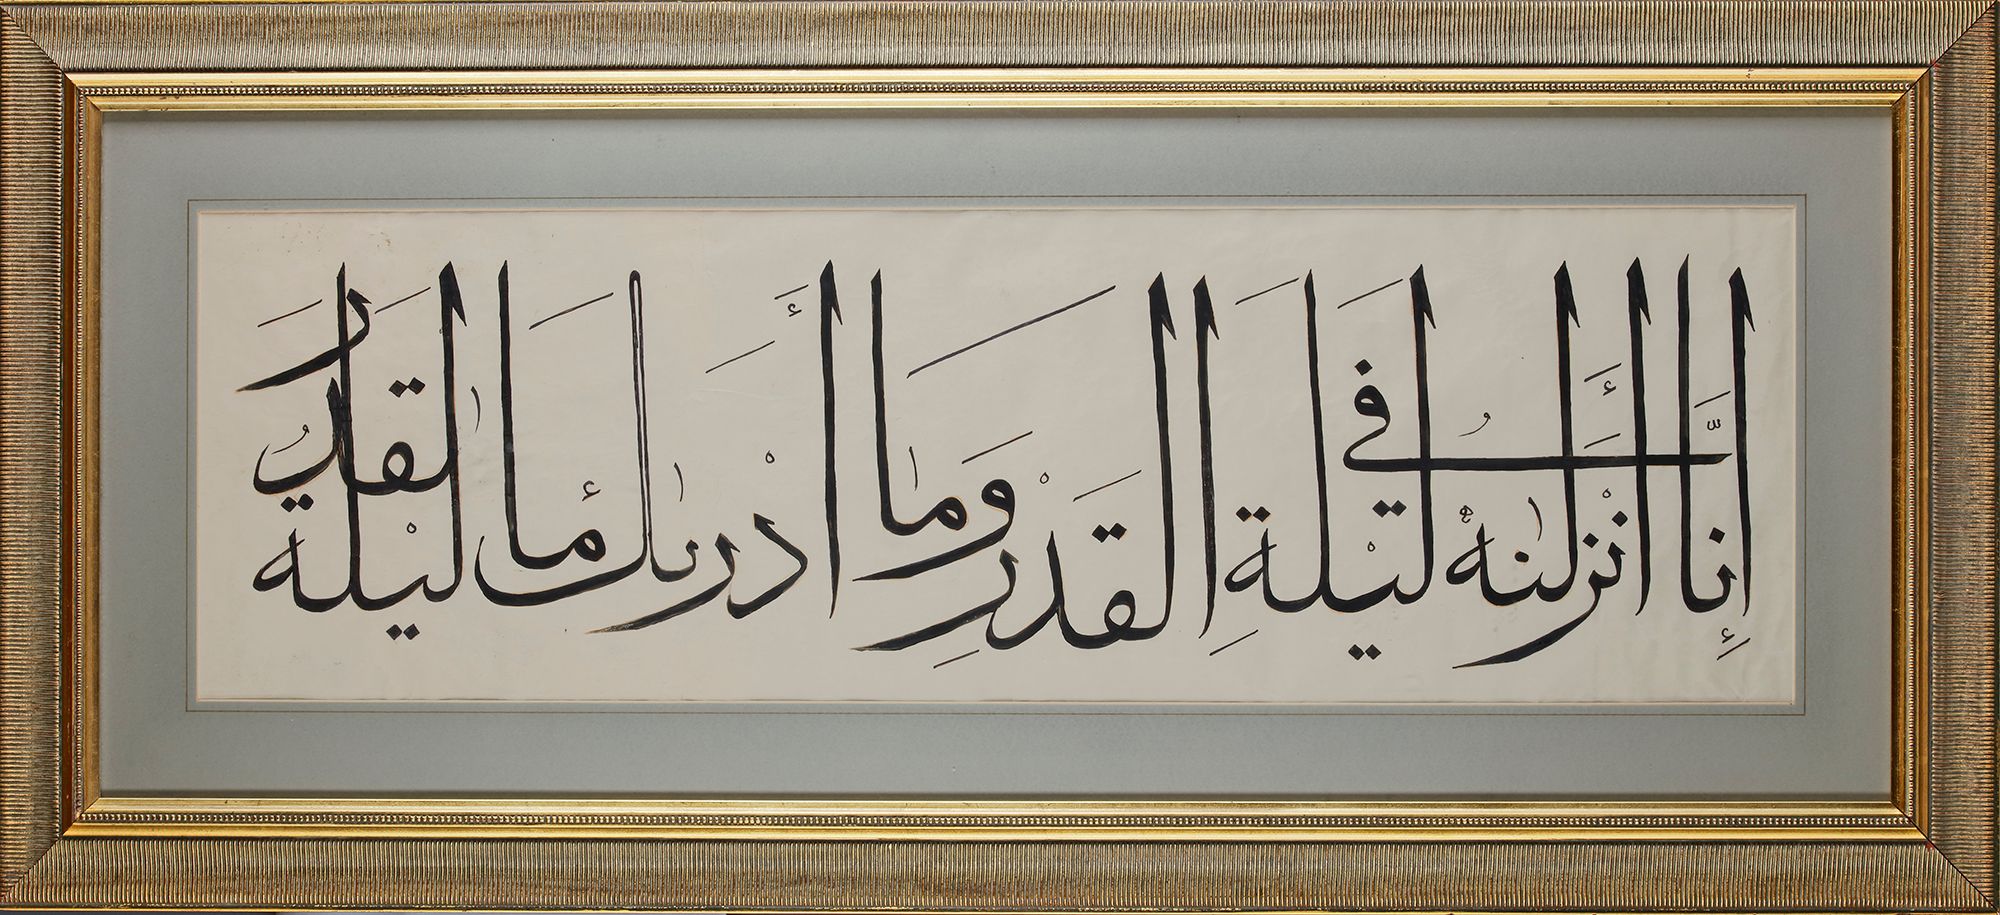 إِنَّا أَنزَلْنَٰهُ فِى لَيْلَةِ ٱلْقَدْرِ وَمَا أَدْرَىٰكَ مَا لَيْلَةُ ٱلْقَدْرِ